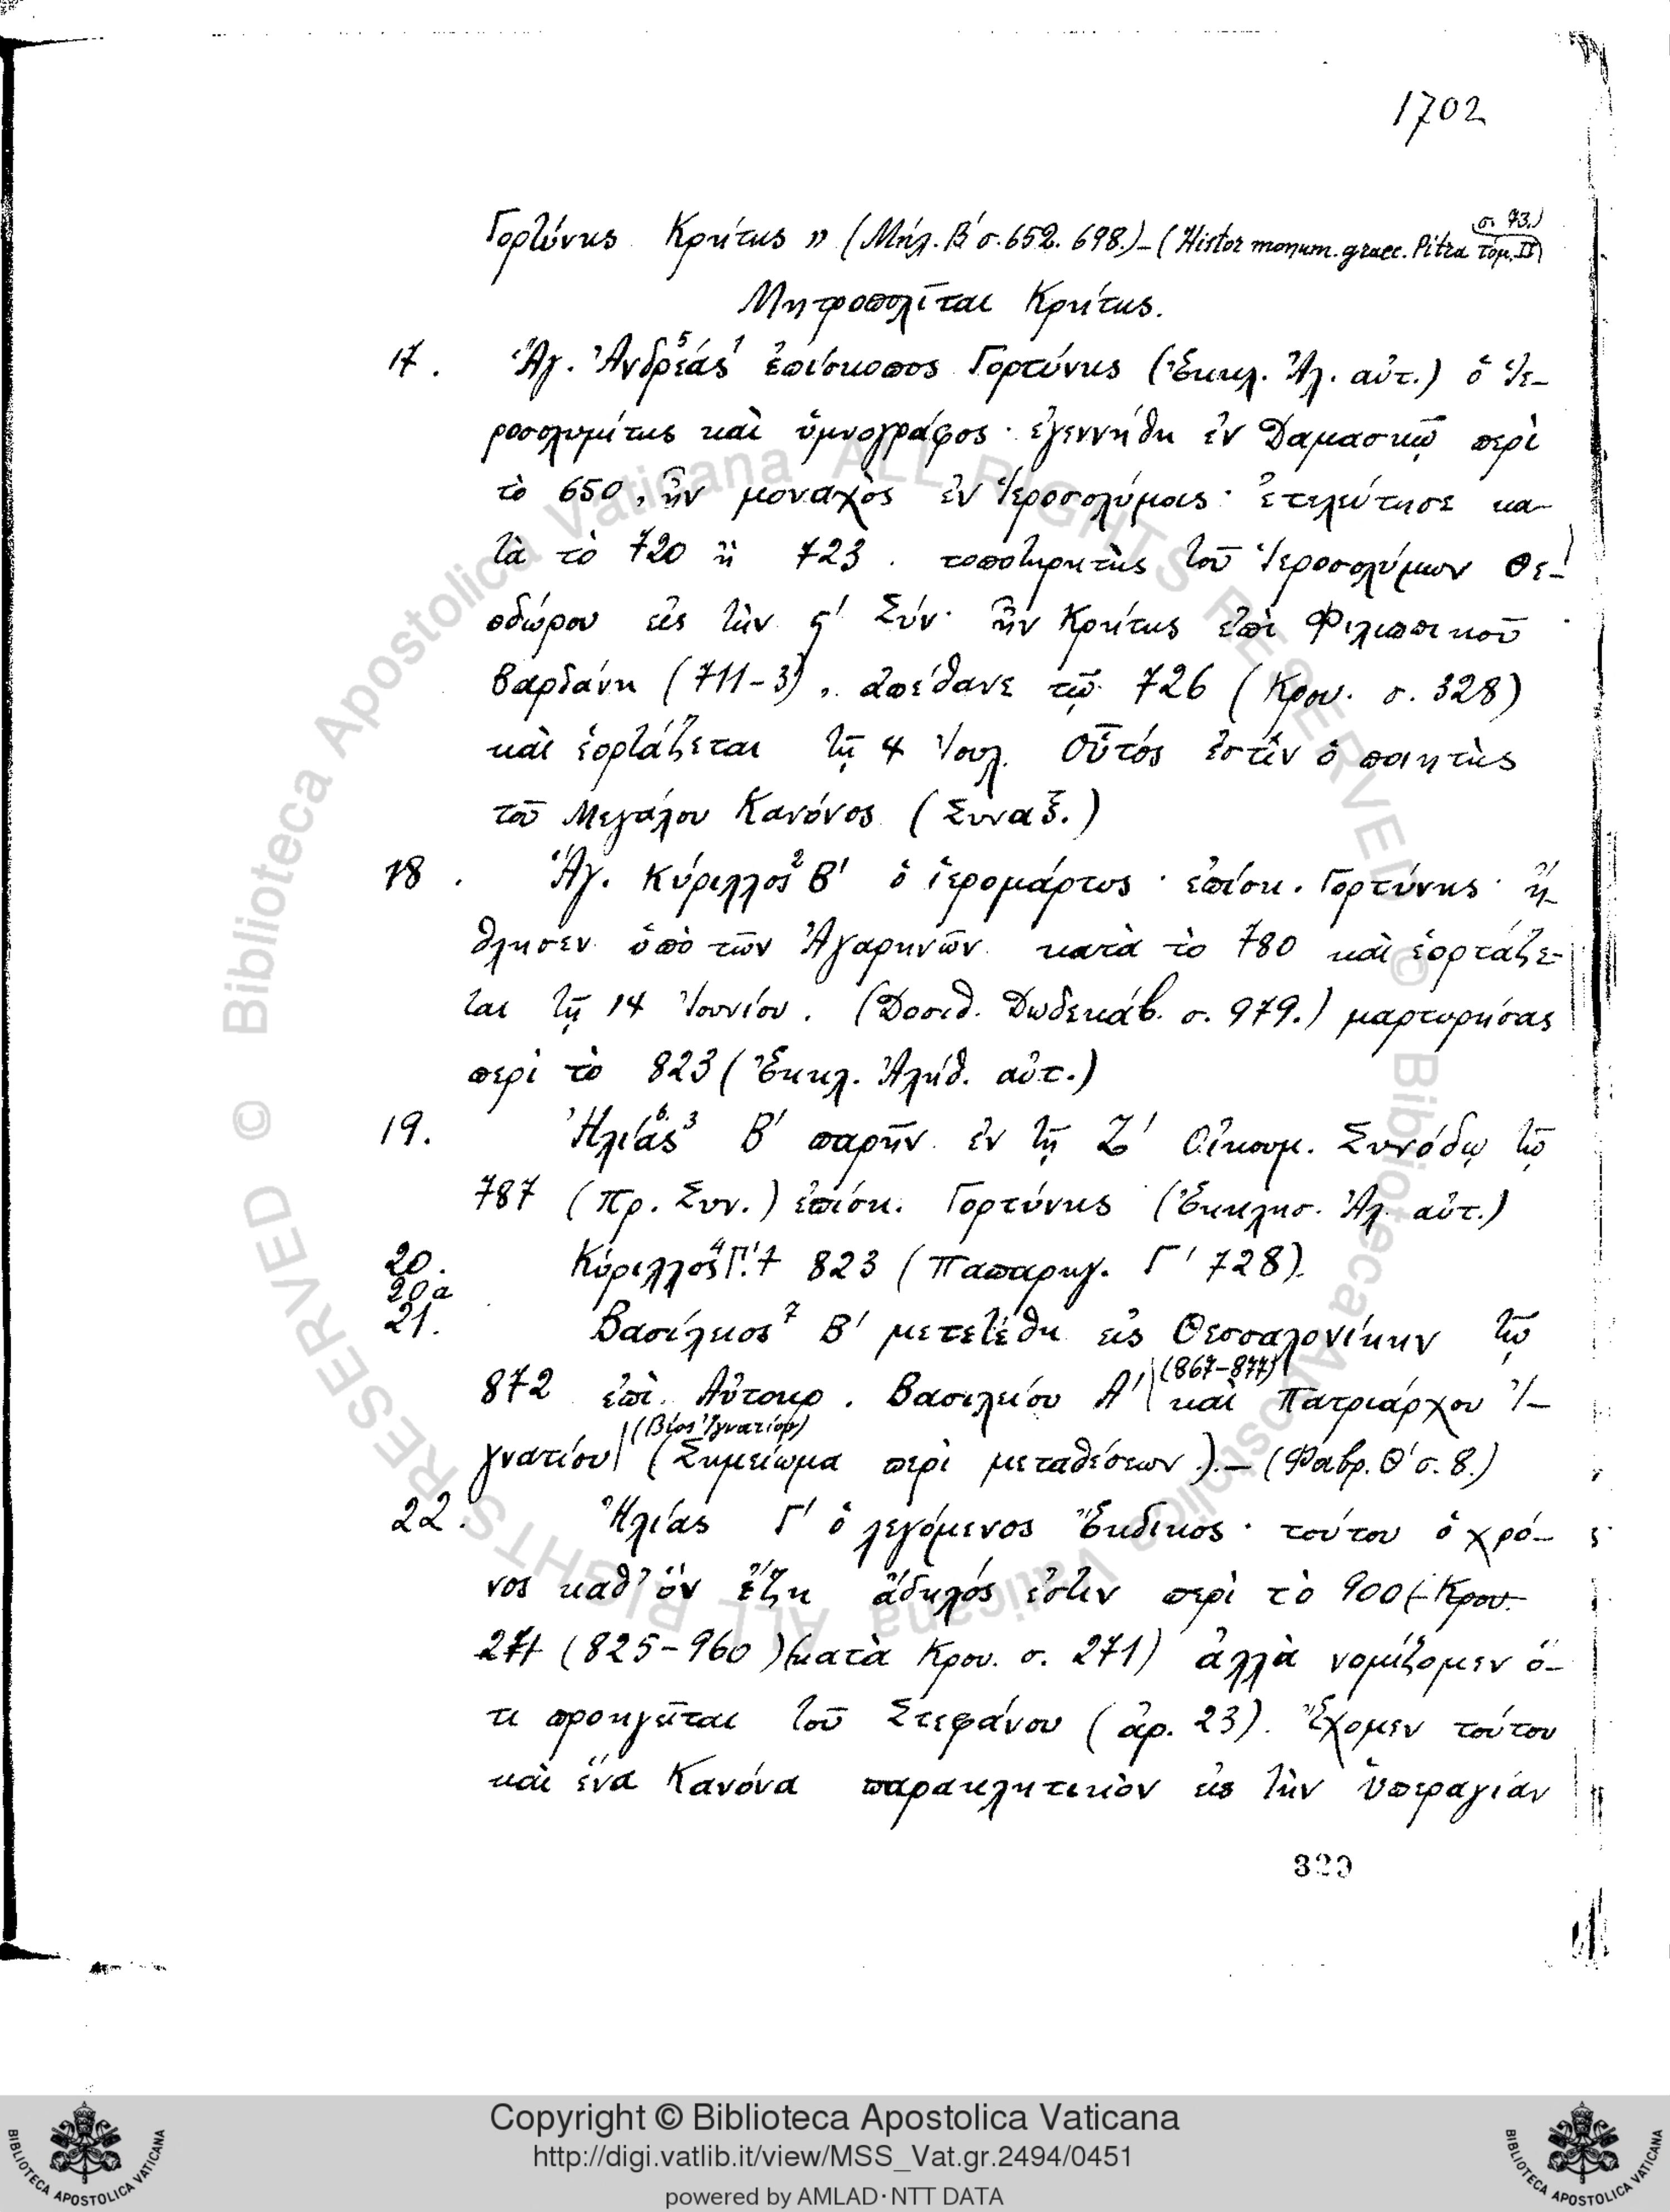 1702
σ. 73.)
Γορτύνης Κρήτης » (Μήλ. Β' σ. 652. 698.) – (Histor monum. graec. Pitra τόμ. II)
Μητροπολῖται Κρήτης.
17. Ἅγ. Ἀνδρέας 5 1 ἐπίσκοπος Γορτύνης (Ἐκκλ. Ἀλ. αὐτ.) ὁ Ἱε-
ροσολυμίτης καὶ ὑμνογράφος · ἐγεννήθη ἐν Δαμασκῷ περὶ
τὸ 650, ἦν μοναχὸς ἐν Ἱεροσολύμοις · ἐτελεύτησε κα-
τὰ τὸ 720 ἢ 723. τοποτηρητὴς τοῦ Ἱεροσολύμων Θε-
οδώρου εἰς τὴν ϛ' Σύν · ἦν Κρήτης ἐπὶ Φιλιππικοῦ
Βαρδάνη (711-3), ἀπέθανε τῷ 726 (Κρου. σ. 328)
καὶ ἑορτάζεται τῇ 4 Ἰουλ. Οὗτός ἐστίν ὁ ποιητὴς
τοῦ Μεγάλου Κανόνος (Συναξ.)
18. Ἅγ. Κύριλλος 2 Β' ὁ ἱερομάρτυς · ἐπίσκ. Γορτύνης · ἤ-
θλησεν ὑπὸ τῶν Ἀγαρηνῶν κατὰ τὸ 780 καὶ ἑορτάζε-
ται τῇ 14 Ἰουνίου. (Δοσιθ. Δωδεκάβ. σ. 979.) μαρτυρήσας
περὶ τὸ 823 (Ἐκκλ. Ἀλήθ. αὐτ.)
19. Ἠλίας 6 3 Β' παρῆν ἐν τῇ Ζ' Οἰκουμ. Συνόδῳ τῷ
787 (Πρ. Συν.) ἐπίσκ. Γορτύνης (Ἐκκλησ. Ἀλ. αὐτ.)
20. Κύριλλος 4 Γ'. † 823 (Παπαρηγ. Γ' 728).
20α
21. Βασίλειος 7 Β' μετετέθη εἰς Θεσσαλονίκην τῷ
(867-877)
872 ἐπὶ Αὐτοκρ. Βασιλείου Α' καὶ Πατριάρχου Ἰ-
(Βίος Ἰγνατίου)
γνατίου (Σημείωμα περὶ μεταθέσεων). – (Φαβρ. Θ' σ. 8.)
22. Ἠλίας Γ' ὁ λεγόμενος Ἔκδικος · τούτου ὁ χρό-
νος καθ' ὃν ἔζη ἄδηλός ἐστιν περὶ τὸ 900 (-Κρου.
271 (825-960) (κατὰ Κρου. σ. 271) ἀλλὰ νομίζομεν ὅ-
τι προηγεῖται τοῦ Στεφάνου (ἀρ. 23). Ἔχομεν τούτου
καὶ ἕνα Κανόνα παρακλητικὸν εἰς τὴν ὑπεραγίαν
329
© Biblioteca Apostolica Vaticana ALL RIGHTS RESERVED © Biblioteca Apostolica Vaticana ALL RIGHTS RESERVED
BIBLIOTECA APOSTOLICA VATICANA
Copyright © Biblioteca Apostolica Vaticana
http://digi.vatlib.it/view/MSS_Vat.gr.2494/0451
powered by AMLAD·NTT DATA
BIBLIOTECA APOSTOLICA VATICANA